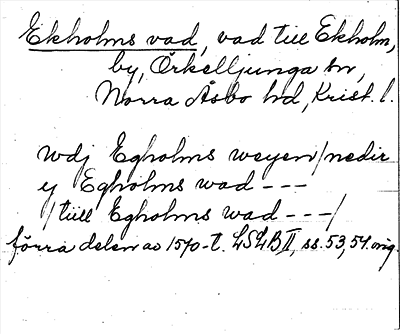 Ekholms vad, vad till Ekholm,
by, Örkelljunga sn,
Norra Åsbo hd, Krist. l.
wdj Egholms weyen / nedir
ij Egholms wad ---
/ tiill Egholms wad --- /
förra delen av 1570-t. LSLB II, ss. 53, 54. orig.